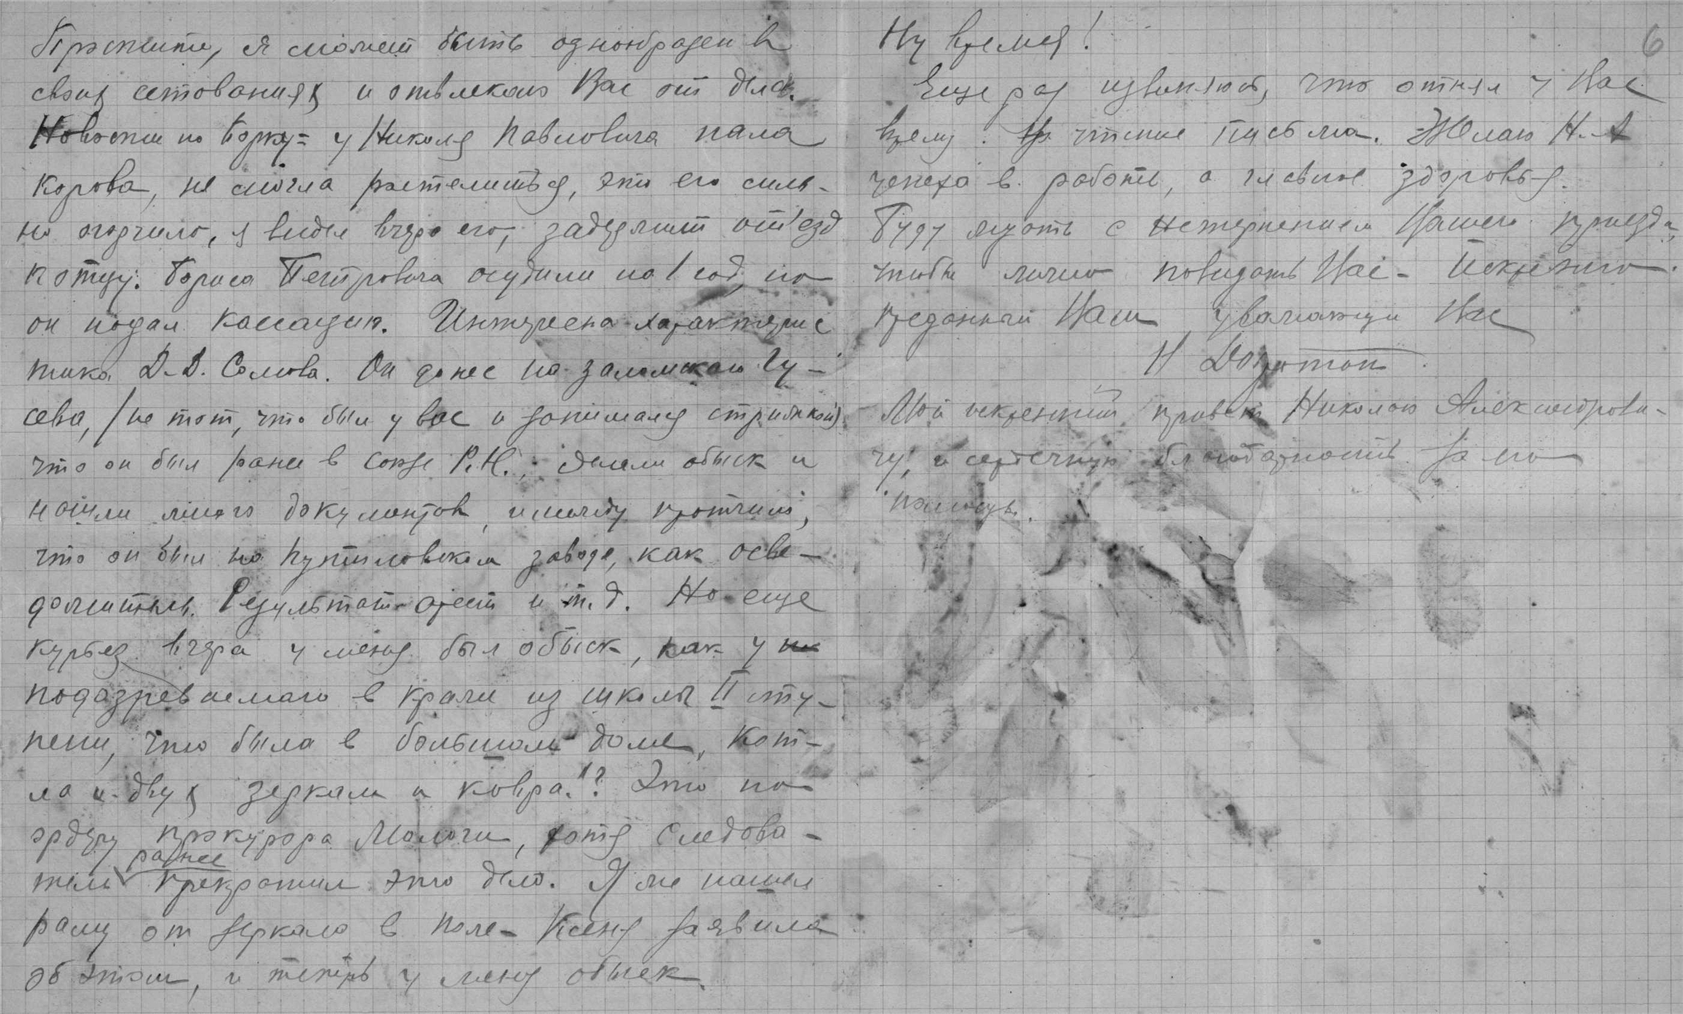 Простите, я может быть однообразен в
своих сетованиях и отвлекаю Вас от дела.
Новости по Борку = у Николая Павловича пала
корова, не смогла растелиться, это его силь-
но огорчило, я видел вчера его, задержит от'езд
к отцу. Бориса Петровича осудили на 1 год, но
он подал кассацию. Интересна характерис
тика Д.Д. Сомова. Он донес на Гу-
сева, (не тот, что был у вас и занимался стрижкой)
что он был ранее в союзе Р.Н., делали обыск и
нашли много документов, и между прочим,
что он был на Путиловском заводе, как осве-
домитель. Результат арест и т.д. Но еще
курьез вчера у меня был обыск, как у
подозреваемаго в краже из школы II сту-
пени, что была в большом доме, кот-
ла и двух зеркал и ковра!? Это по
ордеру прокурора Мологи, хотя следова-
тель ранее прекратил это дело. Я же нашел
раму от зеркала в поле - Ксеня заявила
об этом, и теперь у меня обыск.
Ну время!
6
Еще раз извиняюсь, что отнял у Вас
время. На чтение письма. Желаю Н.А
успеха в работе, а главное здоровья.
Буду ждать с нетерпением Вашего приезда,
чтобы лично повидать Вас - Искренно
преданный Вам уважающий Вас
Н
Мой искренний привет Николаю Александрови-
чу, и сердечную благодарность за его
помощь.